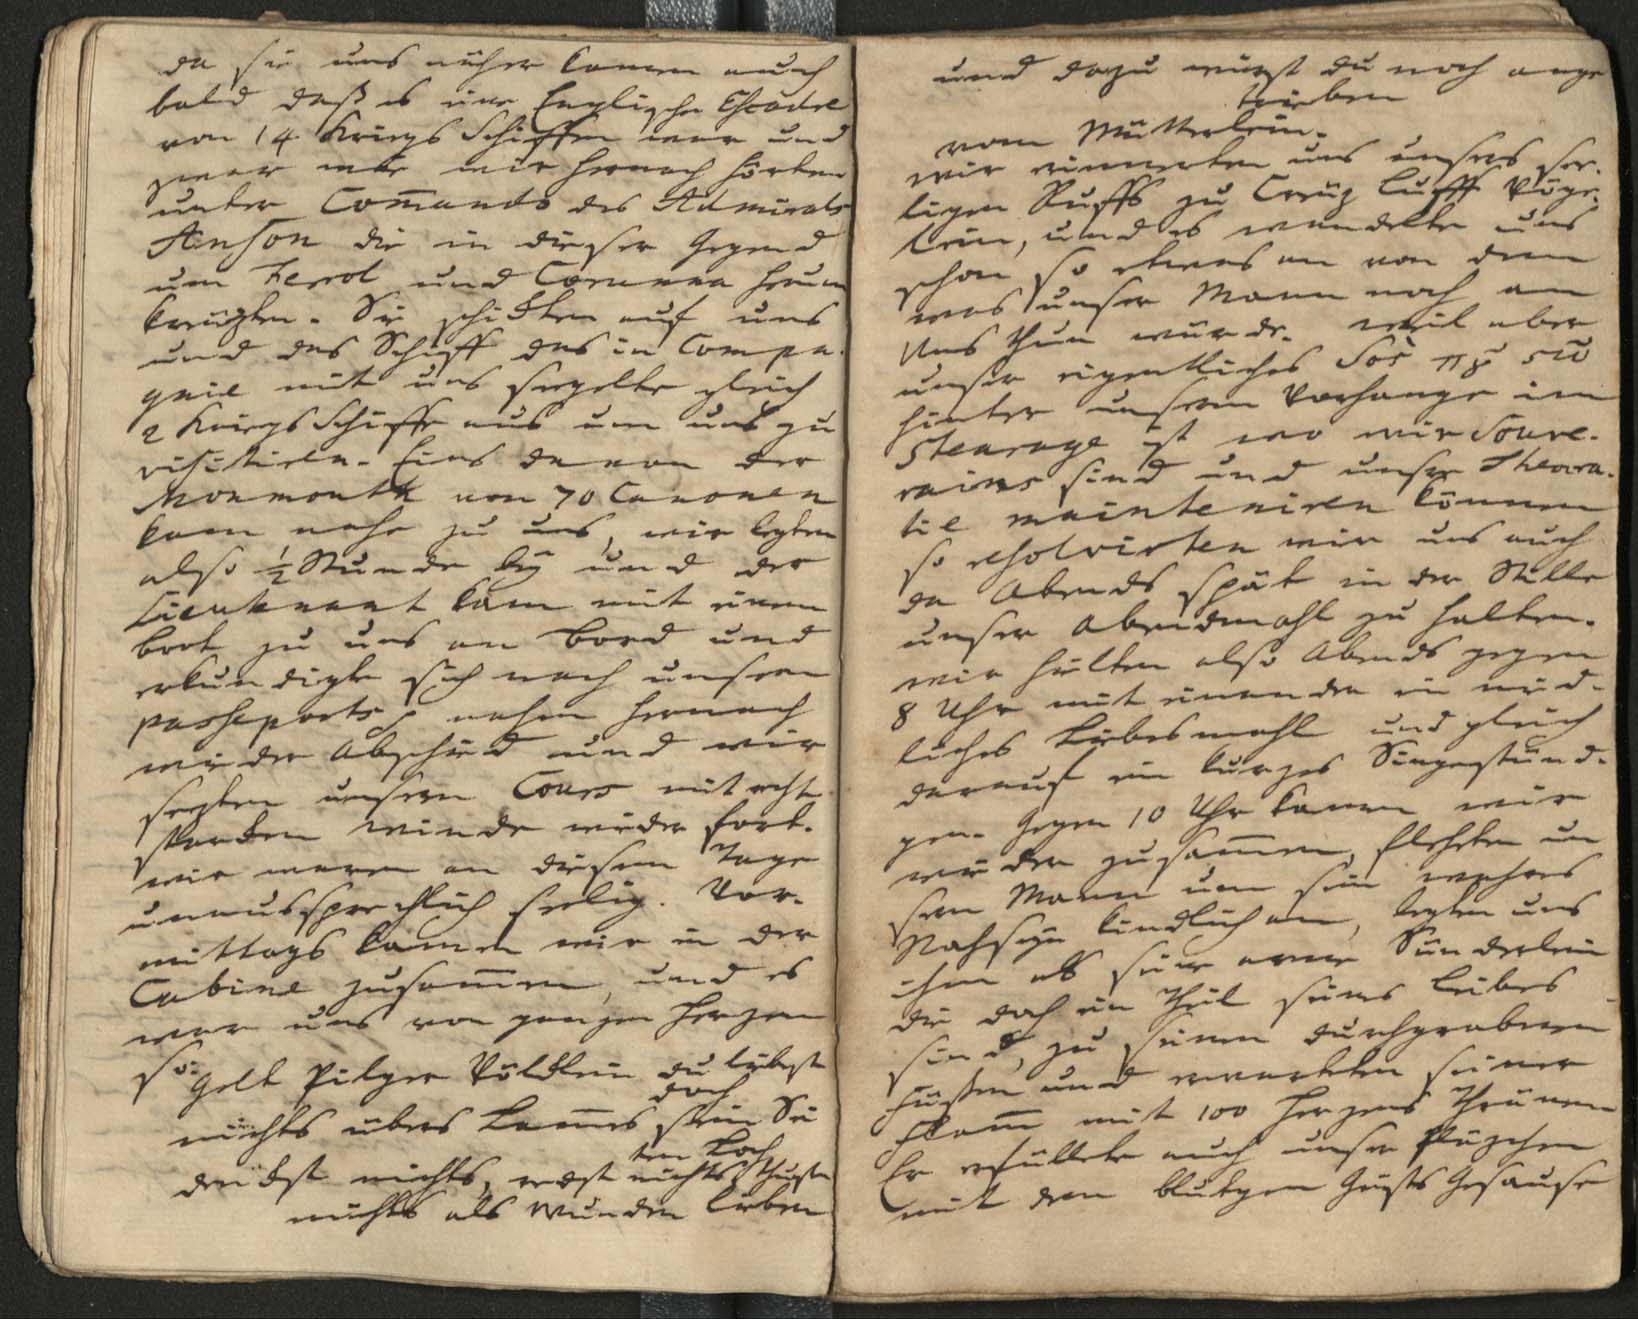 da sie uns näher kamen auch
bald daß es eine Englische Escadre
von 14 Kriegs Schiffen war und
zwar wie wir hernach hörten
unter Com̄ando des Admirals
Anson die in dieser Gegend
um Ferrol und Corunna herum
kreuzten. Sie schickten auf uns
und das Schiff das in Compa-
gnie mit uns segelte gleich
2 Kriegs Schiffe aus um uns zu
visitiren. Eins davon der
Monmouth von 70 Canonen
kam nahe zu uns, wir legten
also ½ Stunde bey und der
Lieutenant kam mit einem
boot zu uns an Bord und
erkundigte sich nach unsern
passeports, nahm hernach
wieder Abschied und wir
sezten unsern Cours mit recht
starken winde wieder fort.
wir waren an diesem Tage
unaussprechlich seelig. Vor-
mittags kamen wir in der
Cabine zusam̄en, und es
war uns von ganzen Herzen
so: Gelt Pilger Völcklein du liebest
doch
nichts übers Lam̄es sein Sei
ten Loch
denckst nichts, redst nichts, thust
nichts als wunden lieben
und dazu wirst du noch ange
trieben
vom Mütterlein.
wir erinnerten uns unsers see-
ligen Ruffs zu Creuz Lufft Vöge-
lein, und es wandelte uns
schon so etwas an von dem
was unser Mann noch an
Uns thun würde. weil aber
unser eigentliches
hinter unserm Vorhange im
Stearage ist wo wir Souve-
rains sind und unsre Theocra-
tie mainteniren können
so resolvirten wir uns auch
da Abends spät in der Stille
unser Abendmahl zu halten.
wir hielten also Abends gegen
8 Uhr mit einander ein nied-
liches Liebesmahl und gleich
darauf ein kurzes Singestünd-
gen. Gegen 10 Uhr kamen wir
wieder zusam̄en, flehten un
sern Mann um sein wahres
Nahseyn kindlich an, legten uns
ihm als seine arme Sünderlein
die doch ein Theil seines Leibes
sind, zu seinen durchgrabenen
Füßen und erwarteten seiner
Flam̄ mit 100 Herzens Thränen
Er erfüllete auch unser Pläzchen
mit dem blutgen Geists Gesause